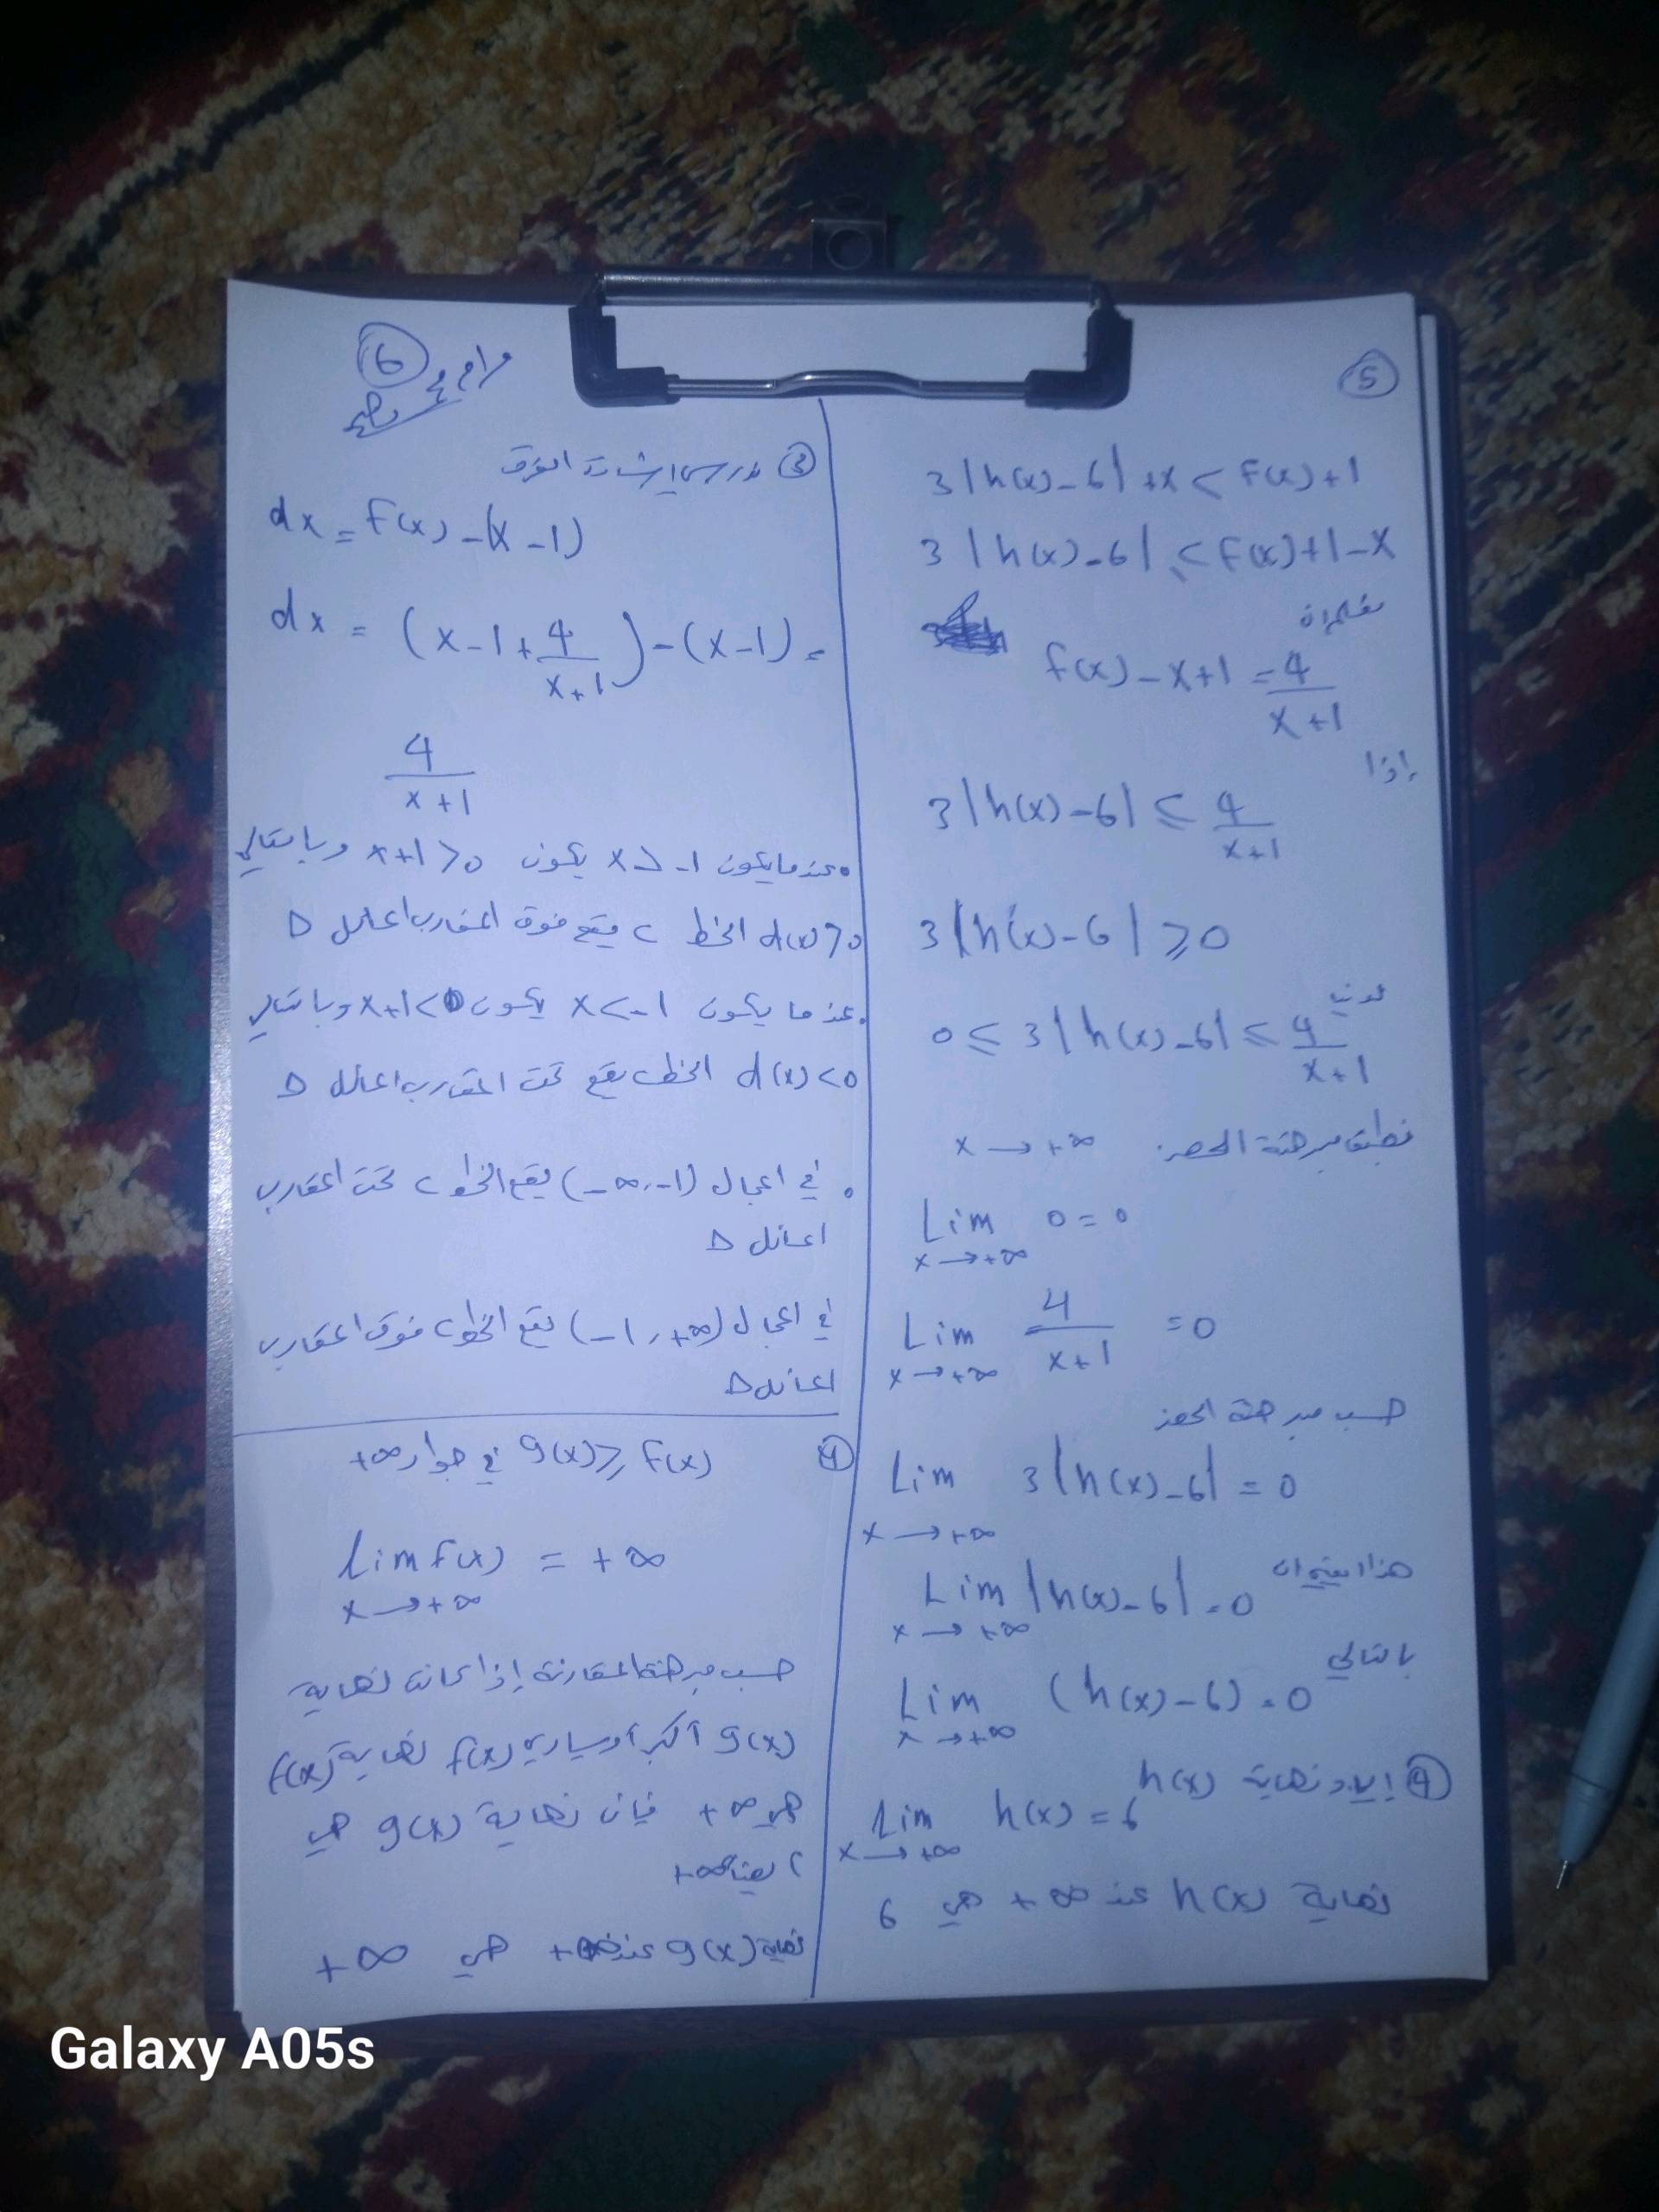 5
3|h(x)-6|+x < f(x)+1
3|h(x)-6| ≤ f(x)+1-x
نعلم ان
f(x)-x+1 = 4/(x+1)
إذا
3|h(x)-6| ≤ 4/(x+1)
3|h(x)-6| ≥ 0
لدينا
0 ≤ 3|h(x)-6| ≤ 4/(x+1)
نطبق مبرهنة الحصر x → +∞
Lim 0 = 0
x → +∞
Lim 4/(x+1) = 0
x → +∞
حسب مبرهنة الحصر
Lim 3|h(x)-6| = 0
x → +∞
هذا يعني ان
Lim |h(x)-6| = 0
x → +∞
بالتالي
Lim (h(x)-6) = 0
x → +∞
④ إيجاد نهاية h(x)
Lim h(x) = 6
x → +∞
نهاية h(x) عند +∞ هي 6
6
③ ندرس إشارة الفرق
dx = f(x) -(x-1)
dx = (x-1+4/(x+1))-(x-1) =
4/(x+1)
• عندما يكون x > -1 يكون x+1>0 وبالتالي
d(x)>0 الخط C يقع فوق المقارب المائل Δ
• عندما يكون x<-1 يكون x+1<0 وبالتالي
d(x)<0 الخط C يقع تحت المقارب المائل Δ
• في المجال (-∞,-1) يقع الخط C تحت المقارب
المائل Δ
في المجال (-1,+∞) يقع الخط C فوق المقارب
المائل Δ
④ g(x) ≥ f(x) في جوار +∞
Lim f(x) = +∞
x → +∞
حسب مبرهنة المقارنة إذا كانت نهاية
g(x) أكبر أو يساوي f(x) نهاية f(x)
هي +∞ فإن نهاية g(x) هي
أيضا +∞
نهاية g(x) عند +∞ هي +∞
Galaxy A05s